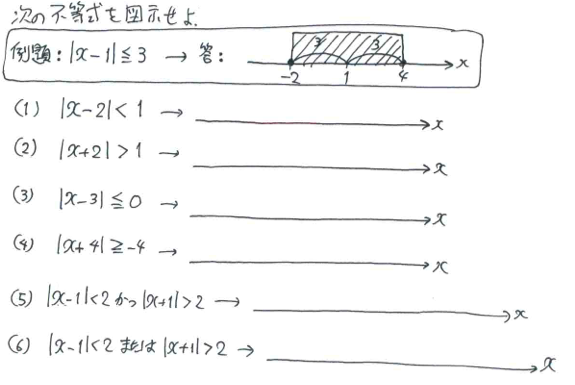 次の不等式を図示せよ.
例題: |x-1|≦3 → 答: 3 3 x
-2 1 4
(1) |x-2|<1 → x
(2) |x+2|>1 → x
(3) |x-3|≦0 → x
(4) |x+4|≧-4 → x
(5) |x-1|<2かつ|x+1|>2 → x
(6) |x-1|<2または|x+1|>2 → x